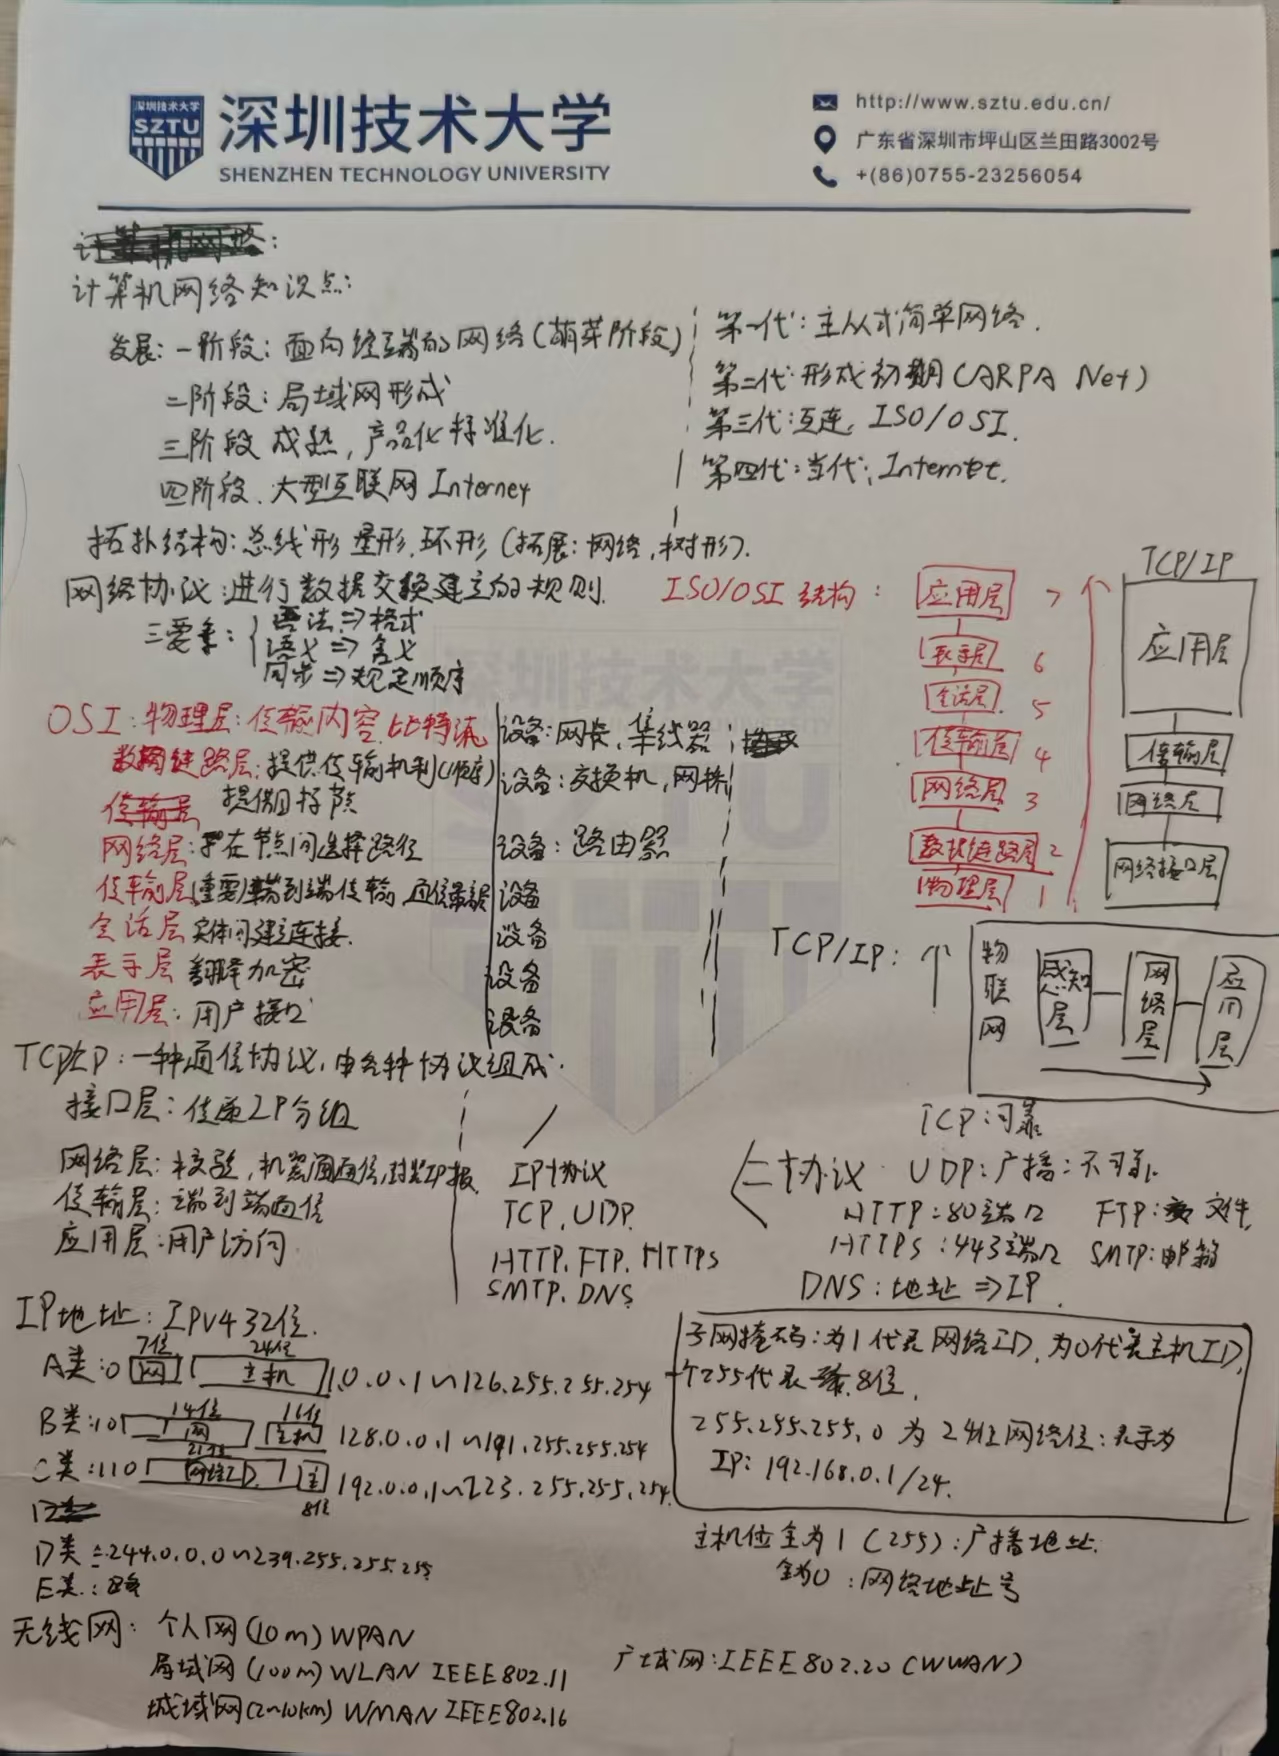 深圳技术大学
SZTU
深圳技术大学
SHENZHEN TECHNOLOGY UNIVERSITY
http://www.sztu.edu.cn/
广东省深圳市坪山区兰田路3002号
+(86)0755-23256054
计算机网络:
计算机网络知识点:
发展: 一阶段: 面向终端的网络(萌芽阶段)
二阶段: 局域网形成
三阶段 成熟, 产品化标准化.
四阶段. 大型互联网 Internet
第一代: 主从式简单网络.
第二代: 形成初期(ARPA Net)
第三代: 互连, ISO/OSI.
第四代: 当代: Internet.
拓扑结构: 总线形 星形. 环形 (拓展: 网络, 树形).
网络协议: 进行数据交换建立的规则.
三要素:
语法 => 格式
语义 => 含义
同步 => 规定顺序
ISO/OSI 结构:
应用层 7
表示层 6
会话层 5
传输层 4
网络层 3
数据链路层 2
物理层 1
TCP/IP
应用层
传输层
网络层
网络接口层
OSI: 物理层: 传输内容 比特流 设备: 网卡, 集线器
数据链路层: 提供传输机制(顺序) 设备: 交换机, 网桥
传输层
网络层: 在节点间选择路径 设备: 路由器
传输层(重要) 端到端传输 设备
会话层 实体间建立连接. 设备
表示层 翻译加密 设备
应用层: 用户接口 设备
TCP/IP: ↑
物联网
感知层
网络层
应用层
TCP/IP: 一种通信协议, 由各种协议组成.
接口层: 传递IP分组 /
网络层: 校验, 机器间通信, 封装IP报. IP协议
传输层: 端到端通信 TCP. UDP.
应用层: 用户访问. HTTP. FTP. HTTPS
SMTP. DNS.
TCP: 可靠
二协议 UDP: 广播: 不可靠.
HTTP: 80端口 FTP: 文件.
HTTPS: 443端口 SMTP: 邮箱
DNS: 地址 => IP.
IP地址: IPV4 32位.
7位 24位
A类: 0 网 主机 1.0.0.1~126.255.255.254
14位 16位
B类: 10 网 主机 128.0.0.1~191.255.255.254
21位
C类: 110 网络ID 主 192.0.0.1~223.255.255.254
8位
D类: 244.0.0.0~239.255.255.255
E类: 略
子网掩码: 为1代表网络ID, 为0代表主机ID,
个255代表 8位.
255.255.255.0 为24位网络位: 表示为
IP: 192.168.0.1/24.
主机位全为1 (255): 广播地址.
全为0: 网络地址号
无线网: 个人网(10m) WPAN
局域网(100m) WLAN IEEE802.11
城域网(2~10km) WMAN IEEE802.16
广域网: IEEE802.20 (WWAN)
深圳技术大学
SZTU